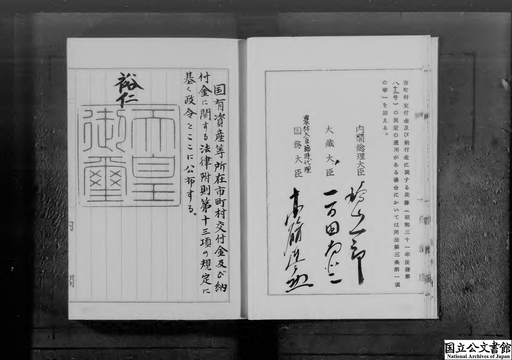 市町村交付金及び納付金に関する法律(昭和三十一年法律第
八十二号)の規定の適用がある場合においては同法第三条第一項
の率」を加える。
内閣総理大臣 鳩山一郎
大蔵大臣 一万田尚登
国務大臣 高碕達之助
国有資産等所在市町村交付金及び納
付金に関する法律附則第十三項の規定に
基く政令をここに公布する。
裕仁
天皇
御璽
国立公文書館
National Archives of Japan